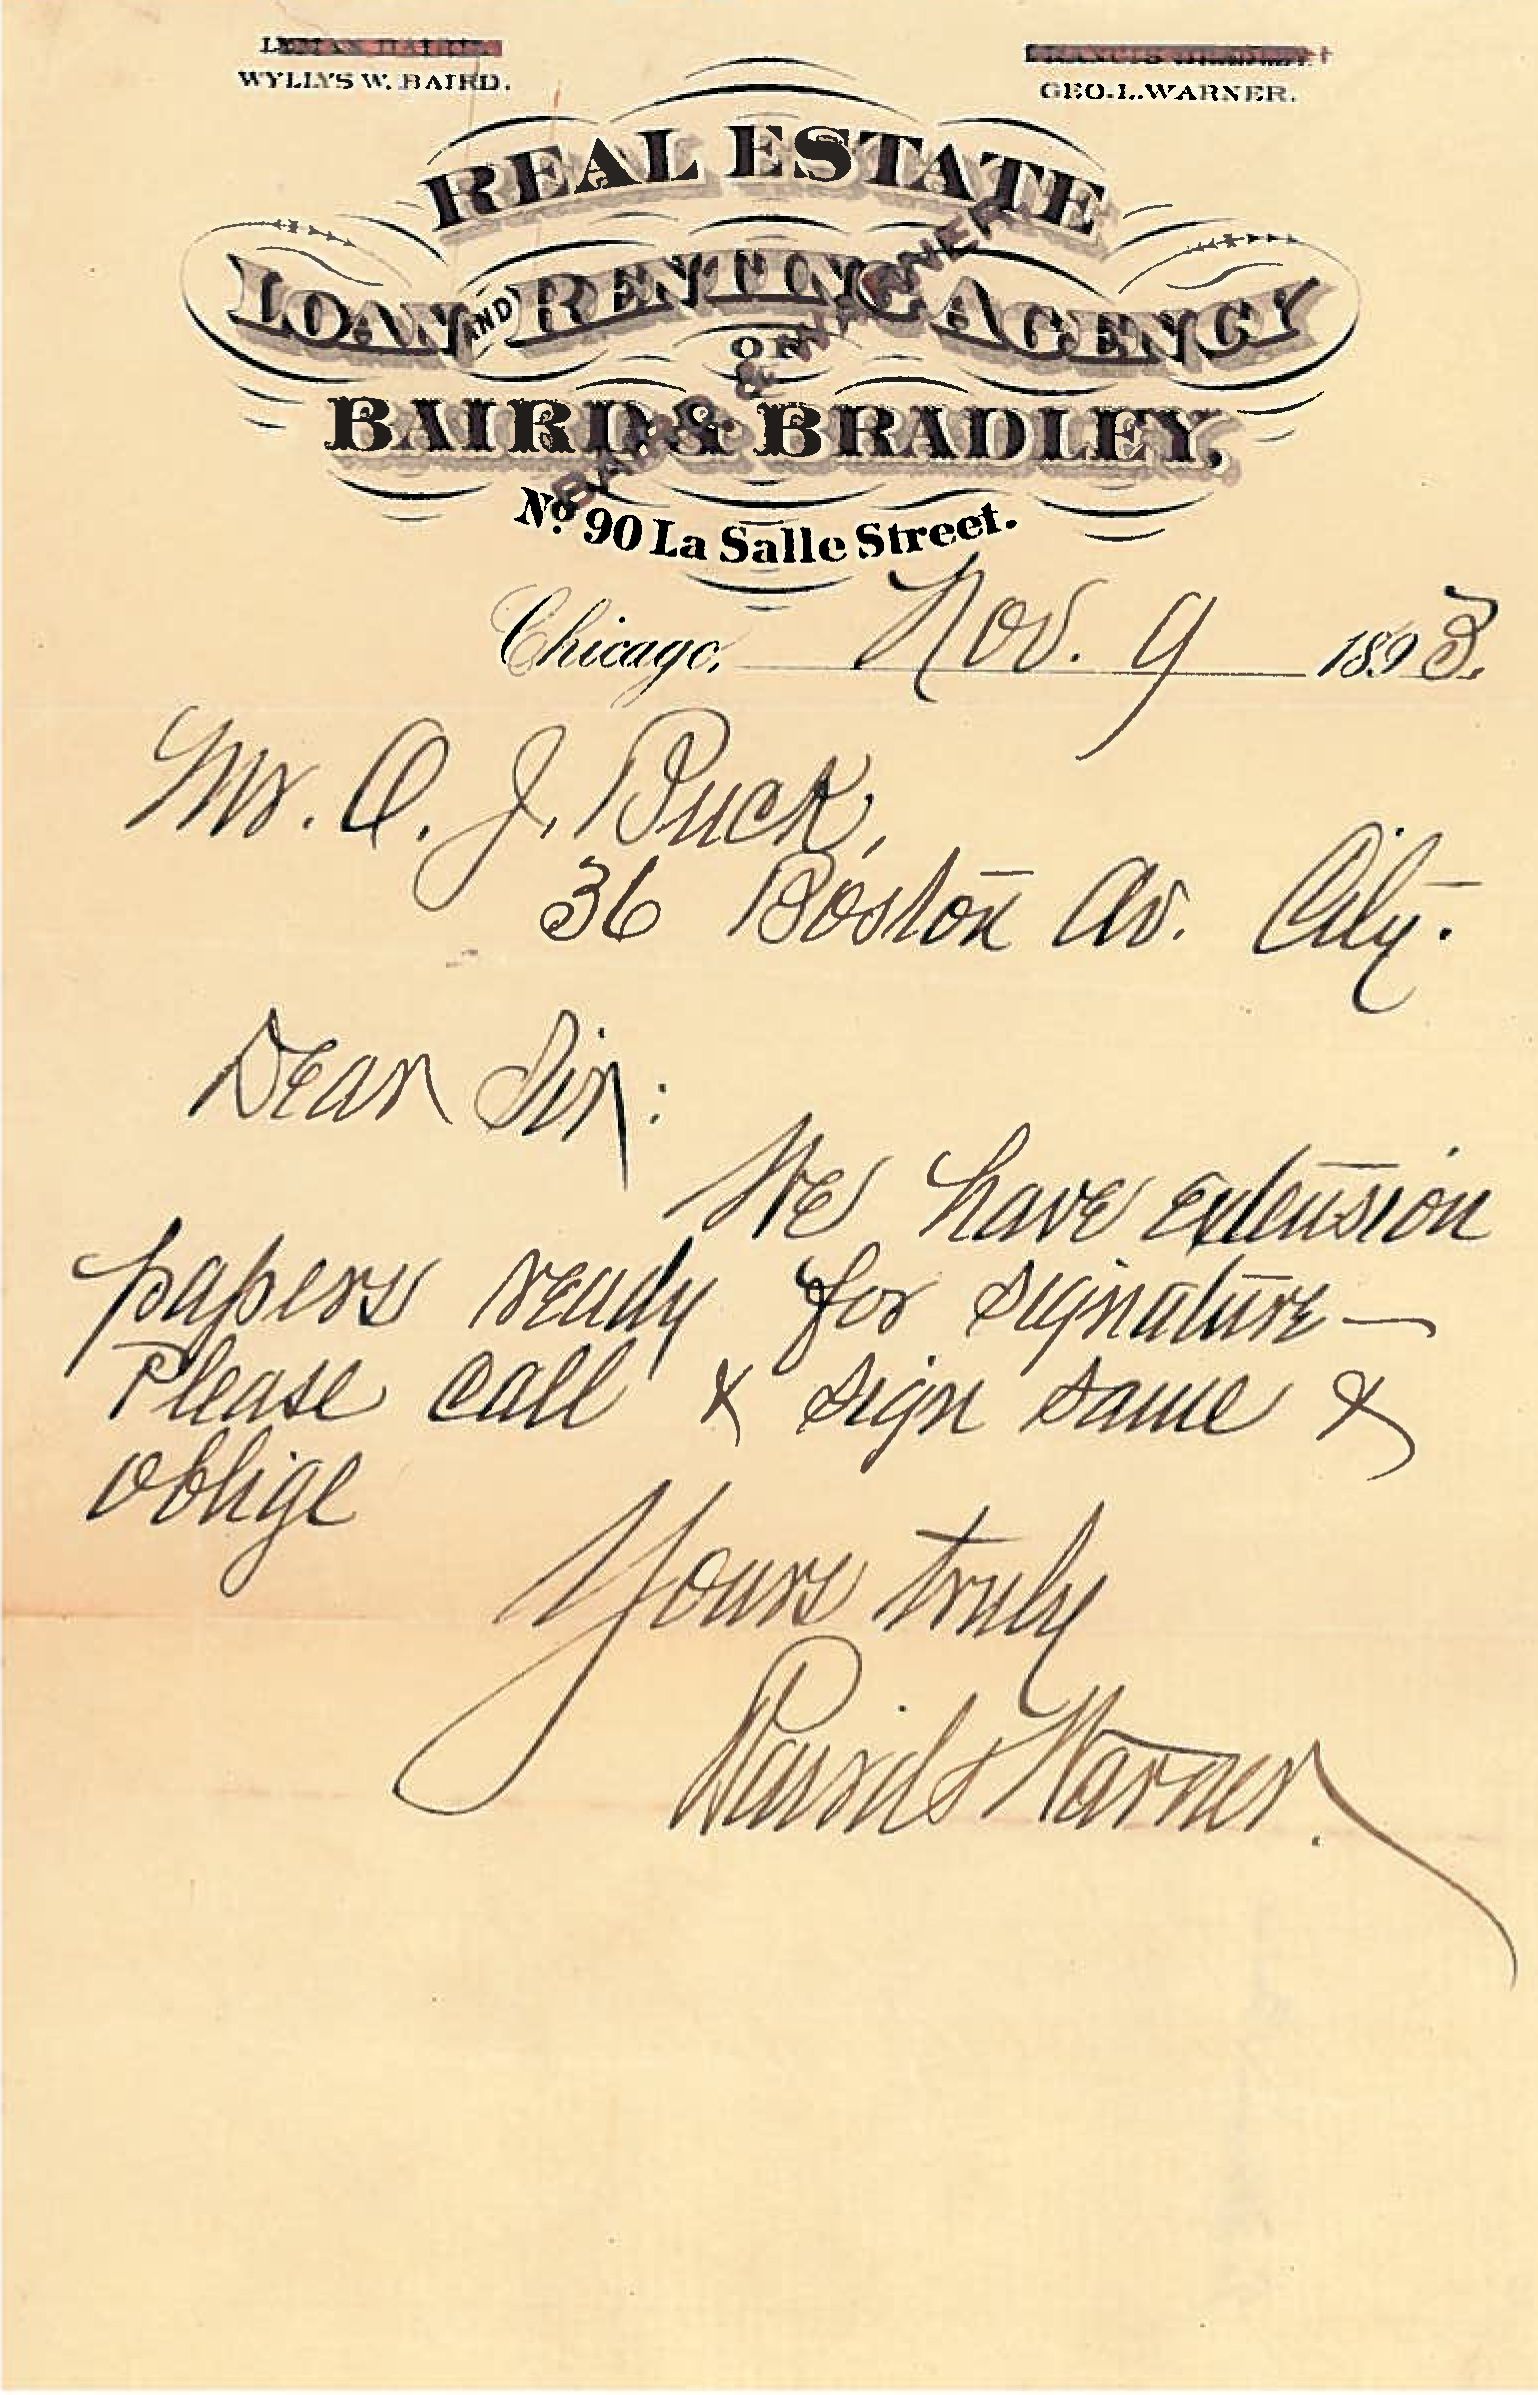 WYLLYS W. BAIRD.
GEO. L. WARNER.
REAL ESTATE
LOAN AND RENTING AGENCY
OF
BAIRD & BRADLEY,
BAIRD & WARNER
No. 90 La Salle Street.
Chicago, Nov. 9 1893.
Mr. O. J. Buck,
36 Boston Av. City.
Dear Sir:
We have extension
papers ready for signature—
Please call & sign same &
oblige
Yours truly
Baird & Warner.